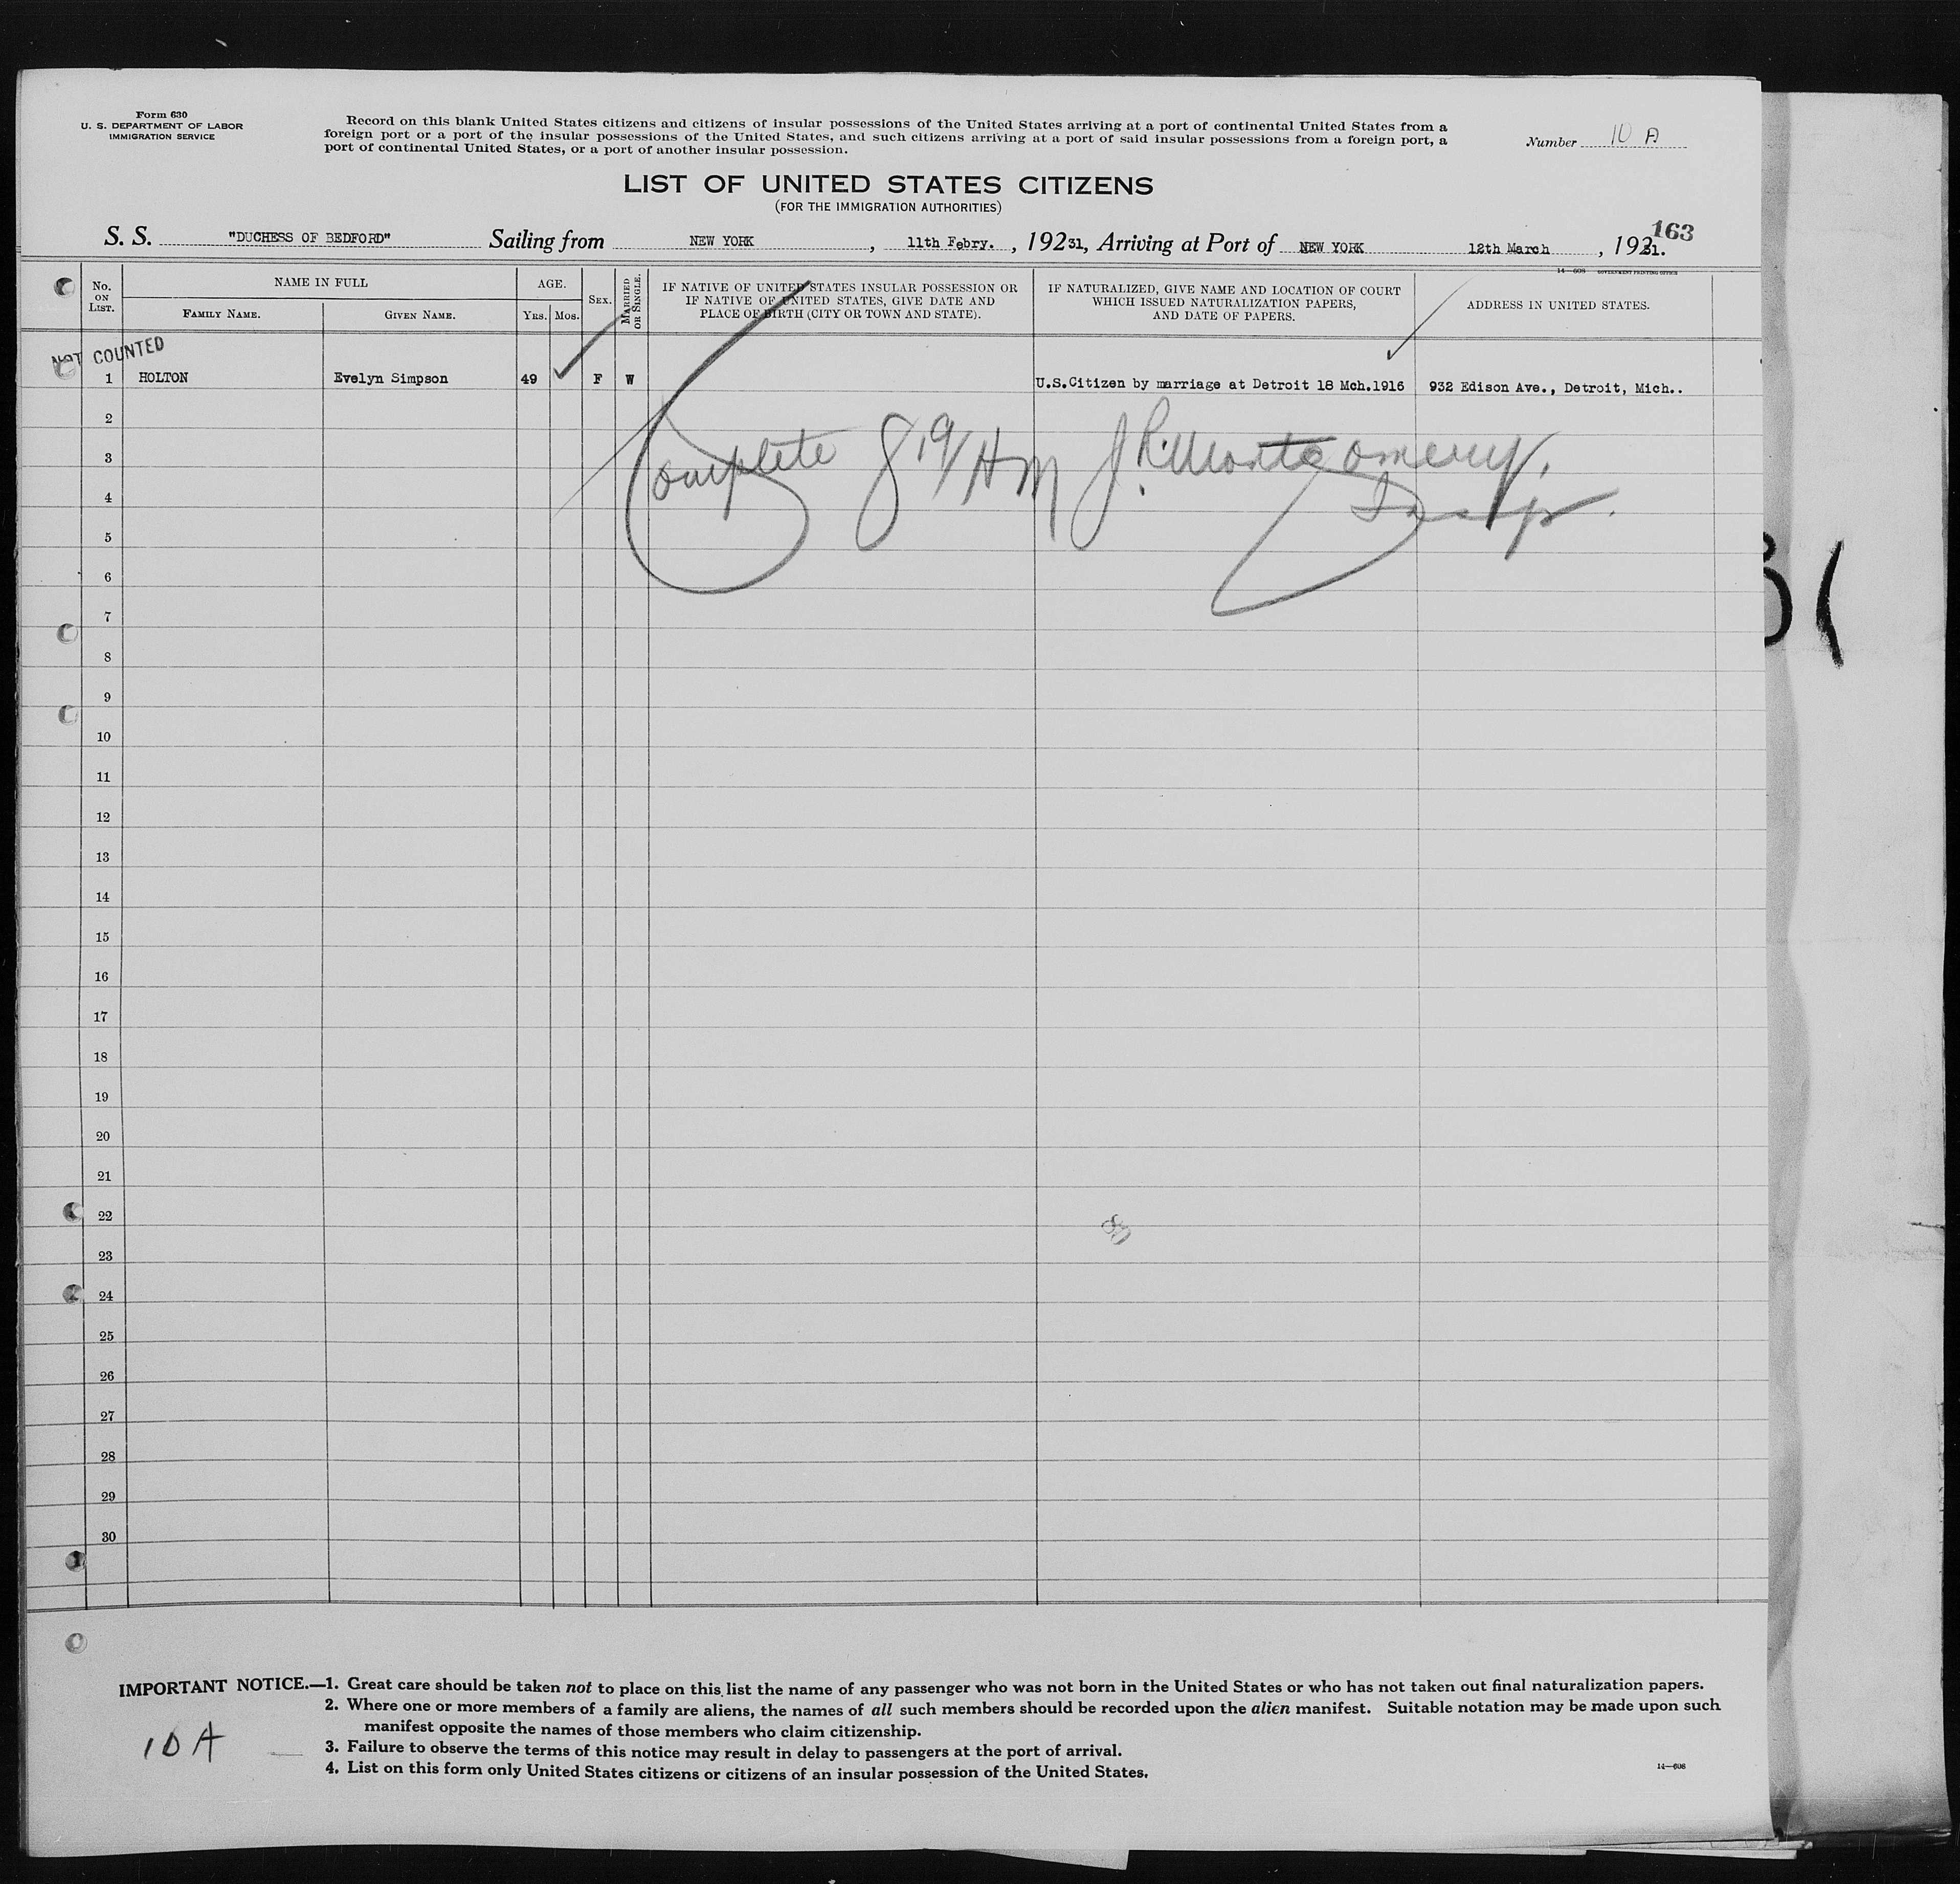 Form 630
U. S. DEPARTMENT OF LABOR
IMMIGRATION SERVICE
Record on this blank United States citizens and citizens of insular possessions of the United States arriving at a port of continental United States from a
foreign port or a port of the insular possessions of the United States, and such citizens arriving at a port of said insular possessions from a foreign port, a
port of continental United States, or a port of another insular possession.
Number 10 A
LIST OF UNITED STATES CITIZENS
(FOR THE IMMIGRATION AUTHORITIES)
163
S. S. "DUCHESS OF BEDFORD" Sailing from NEW YORK, 11th Febry., 19231, Arriving at Port of NEW YORK 12th March, 1931.
14—608 GOVERNMENT PRINTING OFFICE
No. ON LIST.
NAME IN FULL
FAMILY NAME.
GIVEN NAME.
AGE.
YRS. MOS.
SEX.
MARRIED OR SINGLE.
IF NATIVE OF UNITED STATES INSULAR POSSESSION OR
IF NATIVE OF UNITED STATES, GIVE DATE AND
PLACE OF BIRTH (CITY OR TOWN AND STATE).
IF NATURALIZED, GIVE NAME AND LOCATION OF COURT
WHICH ISSUED NATURALIZATION PAPERS,
AND DATE OF PAPERS.
ADDRESS IN UNITED STATES.
NOT COUNTED
1 HOLTON Evelyn Simpson 49 F W U.S.Citizen by marriage at Detroit 18 Mch.1916 932 Edison Ave., Detroit, Mich..
2
Complete J.R. Montgomery,
3
4
5
6
7
8
9
10
11
12
13
14
15
16
17
18
19
20
21
22
80
23
24
25
26
27
28
29
30
IMPORTANT NOTICE.—1. Great care should be taken not to place on this list the name of any passenger who was not born in the United States or who has not taken out final naturalization papers.
2. Where one or more members of a family are aliens, the names of all such members should be recorded upon the alien manifest. Suitable notation may be made upon such
manifest opposite the names of those members who claim citizenship.
3. Failure to observe the terms of this notice may result in delay to passengers at the port of arrival.
4. List on this form only United States citizens or citizens of an insular possession of the United States.
10 A
14—608